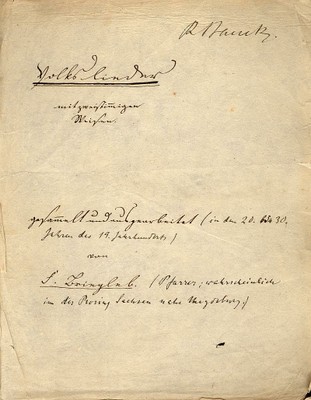 Volkslieder
mit zweistimmigen
Weisen.
gesammelt und ausgearbeitet (in den 20. bis 30.
Jahren des 19. Jahrhunderts)
von
(Pfarrer; wahrscheinlich
in der Provinz Sachsen nahe Magdeburg)